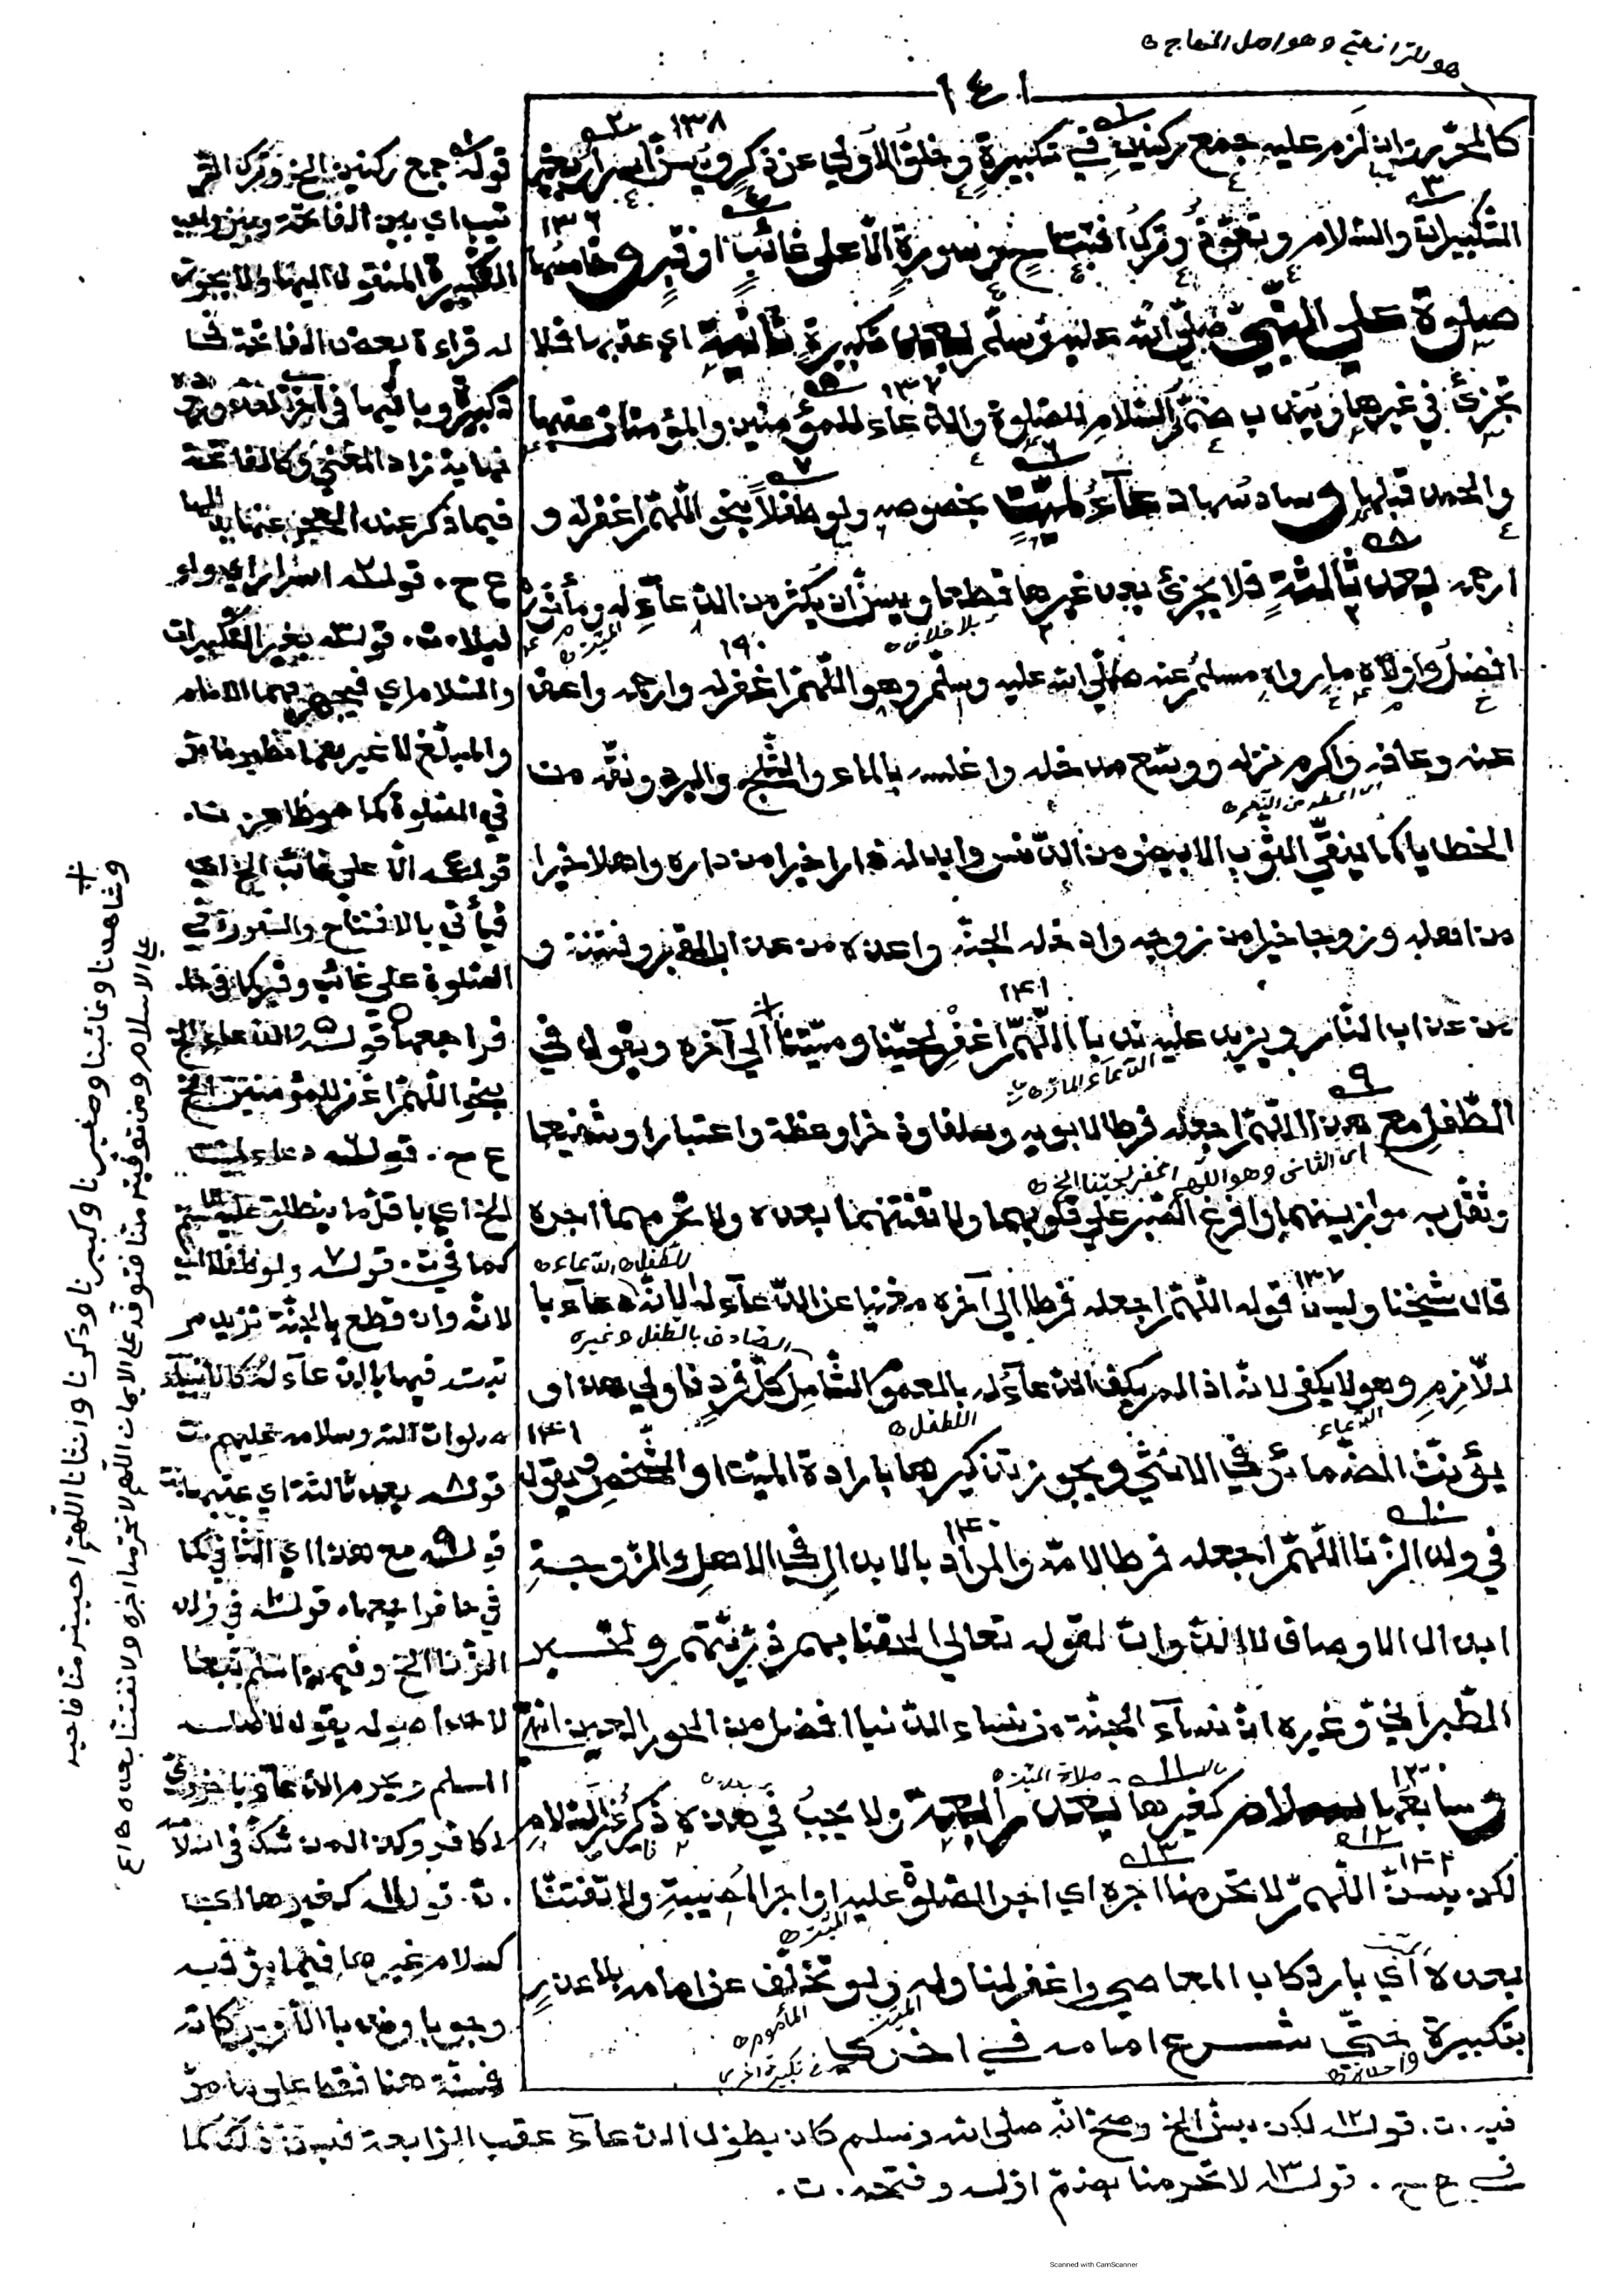 هو للرافعي وهو اصل المنهاج
١٤١
كالمحرر انه لزم عليه جمع ركنين في تكبيرة وخلو الاولي عن ذكر ويسن اسرار بغير
التكبيرات والسلام وتعوذ وترك افتتاح وسورة الا على غائب او قبر وخامسها
صلوة علي النبي صلى الله عليه وسلم بعد تكبيرة ثانية اي عقبها فلا
تجزئ في غيرها ويندب ضم السلام للصلوة والدعاء للمؤمنين والمؤمنات عقبها
والحمد قبلها وسادسها دعاء لميت بخصوصه ولو طفلا بنحو اللهم اغفر له و
ارحمه بعد ثالثة فلا يجزئ بعد غيرها قطعا ويسن ان يكثر من الدعاء له ومأثوره
بلا خلاف
افضل واولاه ما رواه مسلم عنه صلى الله عليه وسلم وهو اللهم اغفر له وارحمه واعف
عنه وعافه واكرم نزله ووسع مدخله واغسله بالماء والثلج والبرد ونقه من
الخطايا كما ينقى الثوب الابيض من الدنس وابدله دارا خيرا من داره واهلا خيرا
من اهله وزوجا خيرا من زوجه وادخله الجنة واعذه من عذاب القبر وفتنته و
من عذاب النار ويزيد عليه ندبا اللهم اغفر لحينا وميتنا الي آخره ويقول في
الدعاء المار
الطفل مع هذا اللهم اجعله فرطا لابويه وسلفا وذخرا وعظة واعتبارا وشفيعا
اي الثاني وهو اللهم اغفر لحينا الخ
وثقل به موازينهما وافرغ الصبر علي قلوبهما ولا تفتنهما بعده ولا تحرمهما اجره
قال شيخنا وليس قوله اللهم اجعله فرطا الي آخره مغنيا عن الدعاء له لانه دعاء با
الصادق بالطفل وغيره
للازم وهو لا يكفي لانه اذا لم يكف الدعاء له بالعموم الشامل كل فرد فاولي هذا و
يؤنث الضمائر في الانثي ويجوز تذكيرها بارادة الميت او الشخص ويقول
في ولد الزنا اللهم اجعله فرطا لامه والمراد بالابدال في الاهل والزوجة
ابدال الاوصاف لا الذوات لقوله تعالي الحقنا بهم ذريتهم ولخبر
الطبراني وغيره ان نساء الجنة من نساء الدنيا افضل من الحور العين انتهى
وسابعها سلام كغيرها بعد رابعة ولا يجب في هذه ذكر غير السلام
لكن يسن اللهم لا تحرمنا اجره اي اجر الصلوة عليه او اجر المصيبة ولا تفتنا
بعده اي بارتكاب المعاصي واغفر لنا وله ولو تخلف عن امامه بلا عذر
بتكبيرة حتى شرع امامه في اخرى
قوله جمع ركنين الخ وترك التر
تيب اي بين الفاتحة وبين واجب
التكبيرة المنقولة اليها ولا يجوز
له قراءة بعض الفاتحة في
تكبيرة وباقيها في اخرى
نهاية زاد المغني وكالفاتحة
فيما ذكر عند العجز عنها بدلها
ع ح. قوله اسرار اي ولو
ليلا. ت. قوله بغير التكبيرات
والسلام اي فيجهر بهما الامام
والمبلغ لا غير بهما نظير ما مر
في الصلوة كما هو ظاهر. ت.
قوله الا علي غائب الخ اي
فيأتي بالافتتاح والسورة في
الصلوة علي غائب وقبر كما في
فراجعها قوله والدعاء الخ
بنحو اللهم اغفر للمؤمنين الخ
ع ح. قوله دعاء لميت
الخ اي باقل ما ينطلق عليه الاسم
كما في ت. قوله ولو طفلا اي
لانه وان قطع بالجنة تزيد مر
تبته فيها بالدعاء له كالانبياء
صلوات الله وسلامه عليهم. ت
قوله بعد ثالثة اي عقبها
قوله مع هذا اي الثاني كما
في فراجعها. قوله في ولد
الزنا الخ وفيمن اسلم تبعا
لاحد اصوله يقول لاصله
المسلم ويحرم الدعاء باخروي
لكافر وكذا من شك في اسلامه
. ت. قوله كغيرها اي
كسلام غيرها فيما مر فيه
وجوبا وندبا الا وبركاته
فسنة هنا فقط على ما مر
فيه. ت. قوله لكن يسن الخ وصح انه صلى الله وسلم كان يطول الدعاء عقب الرابعة فيسن ذلك كما
في ع ح. قوله لا تحرمنا بضم اوله وفتحه. ت.
وشاهدنا وغائبنا وصغيرنا وكبيرنا وذكرنا وانثانا اللهم من احييته منا فاحيه
على الاسلام ومن توفيته منا فتوفه على الايمان اللهم لا تحرمنا اجره ولا تفتنا بعده
Scanned with CamScanner